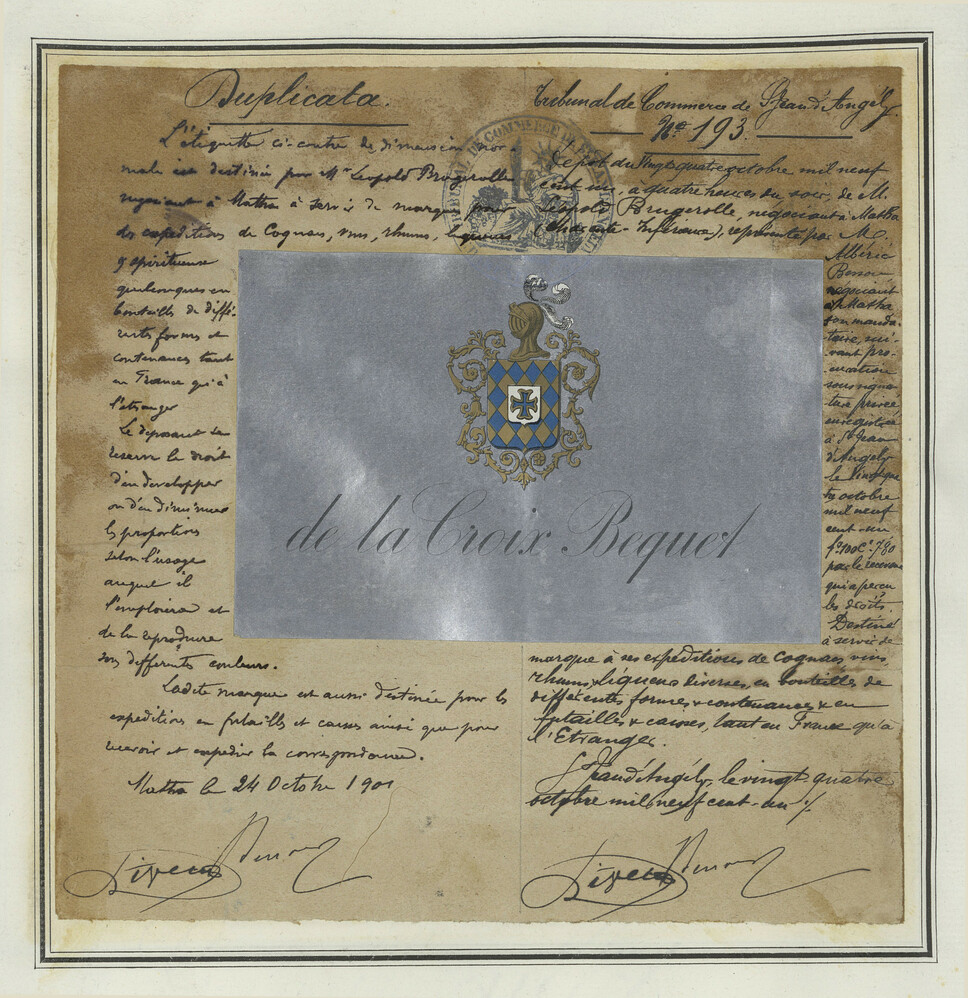 Duplicata.
L'étiquette ci-contre de dimension nor-
male est destinée par Mr Léopold Brugerolle
négociant à Matha à servir de marque pour
les expéditions de Cognac, vins, rhums, liqueurs
& spiritueux
quelconques en
bouteilles de diffé-
rentes formes et
contenances tant
en France qu'à
l'étranger
Le déposant se
réserve le droit
d'en développer
ou d'en diminuer
les proportions
selon l'usage
auquel il
l'emploiera et
de la reproduire
en différentes couleurs.
Ladite marque est aussi destinée pour les
expéditions en futailles et caisses ainsi que pour
recevoir et expédier la correspondance.
Matha le 24 Octobre 1901
Tribunal de Commerce de St Jean d'Angély
No 193.
Dépôt du vingt quatre octobre mil neuf
cent un, à quatre heures du soir, de M.
Léopold Brugerolle, négociant à Matha
(Charente-Inférieure), représenté par M.
Albéric
Besson
négociant
à Matha
son manda-
taire, sui-
vant pro-
curation
sous signa-
ture privée
enregistrée
à St Jean
d'Angély
le vingt qua
tre octobre
mil neuf
cent-un
fo 100 Co 780
par le receveur
qui a perçu
les droits.
Destiné
à servir de
marque à ses expéditions de cognacs, vins,
rhums & liqueurs diverses, en bouteilles de
différentes formes & contenances & en
futailles & caisses, tant en France qu'à
l'Etranger.
St Jean d'Angély, le vingt quatre
octobre mil neuf cent-un %
de la Croix Bequet